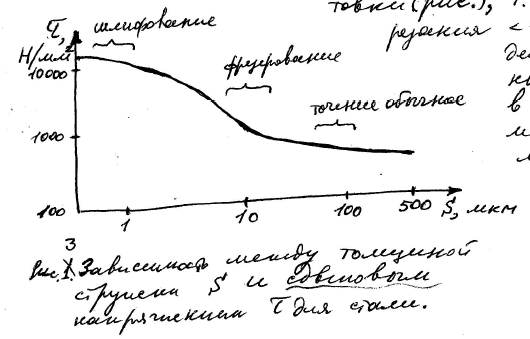 товки (рис.), т.
резания <
де
кы
в
м
τ,
Н/мм
шлифование
10000
фрезерование
точение обычное
1000
100
1
10
100
500
S, мкм
3
Рис. 1. Зависимость между толщиной
стружки S и сдвиговым
напряжением τ для стали.